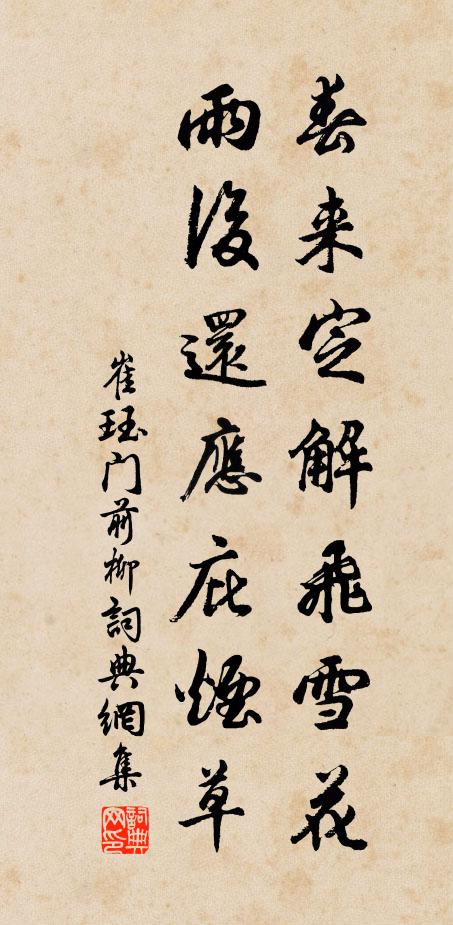 春来定解飛雪花
雨後還應庇煙草
崔珏门前柳詞典網集
詞典网印